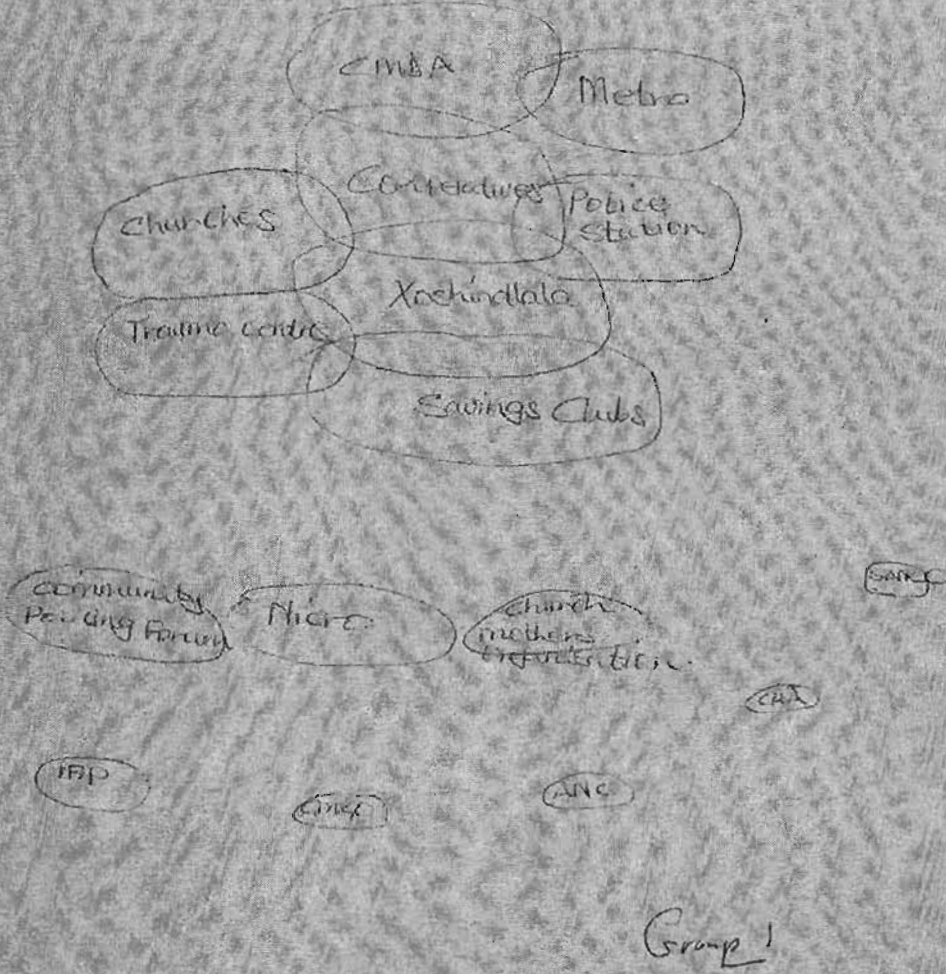 CMBA
Metro
Cooperatives
Police
Station
Churches
Xoshindlala
Trauma centre
Savings Clubs
Community
Policing Forum
Micro
Church
mothers
IFP
ANC
Group 1